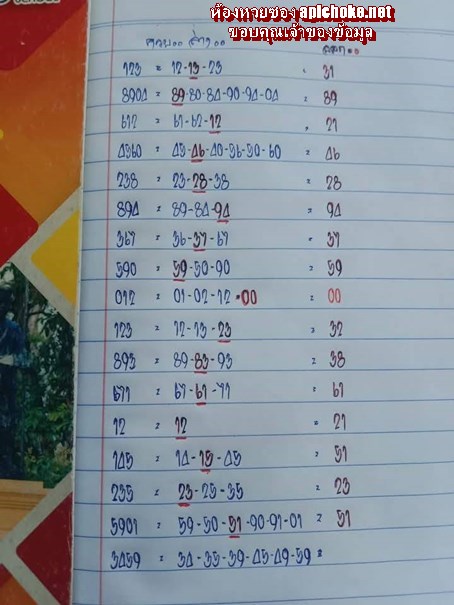 ห้องหวยซอง aplchoke.net
ขอบคุณเจ้าของข้อมูล
ล่าง ออก
123 = 12-13-23 = 31
8904 = 89-80-84-90-94-04 = 89
612 = 61-62-12 = 21
4560 = 45-46-40-56-50-60 = 46
238 = 23-28-38 = 28
894 = 89-84-94 = 94
367 = 36-37-67 = 37
590 = 59-50-90 = 59
012 = 01-02-12-00 = 00
123 = 12-13-23 = 32
893 = 89-83-93 = 38
671 = 67-61-71 = 61
12 = 12 = 21
145 = 14-15-45 = 51
235 = 23-25-35 = 23
5901 = 59-50-51-90-91-01 = 51
3459 = 34-35-39-45-49-59 =